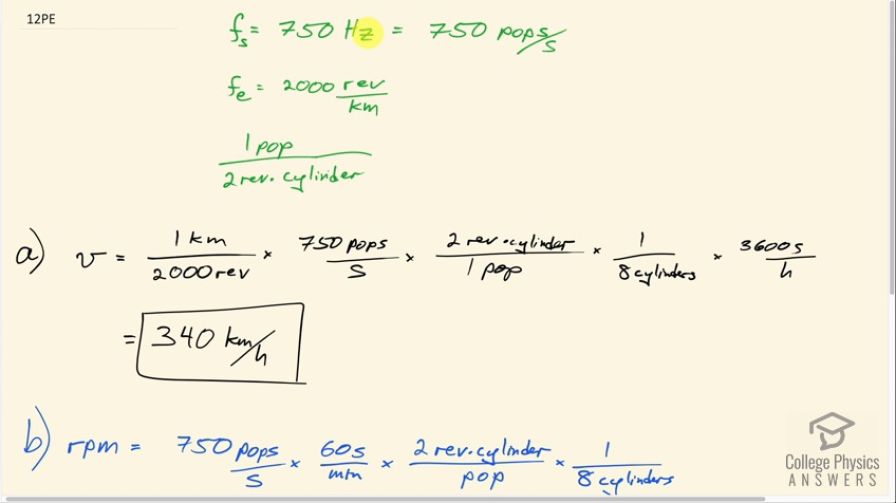 12PE
fₛ = 750 Hz = 750 pops/s
fₑ = 2000 rev/km
1 pop / 2 rev · cylinder
a) v = 1 km / 2000 rev × 750 pops / s × 2 rev · cylinder / 1 pop × 1 / 8 cylinders × 3600 s / h
= 340 km/h
b) rpm = 750 pops / s × 60 s / min × 2 rev · cylinder / pop × 1 / 8 cylinders
College Physics
ANSWERS